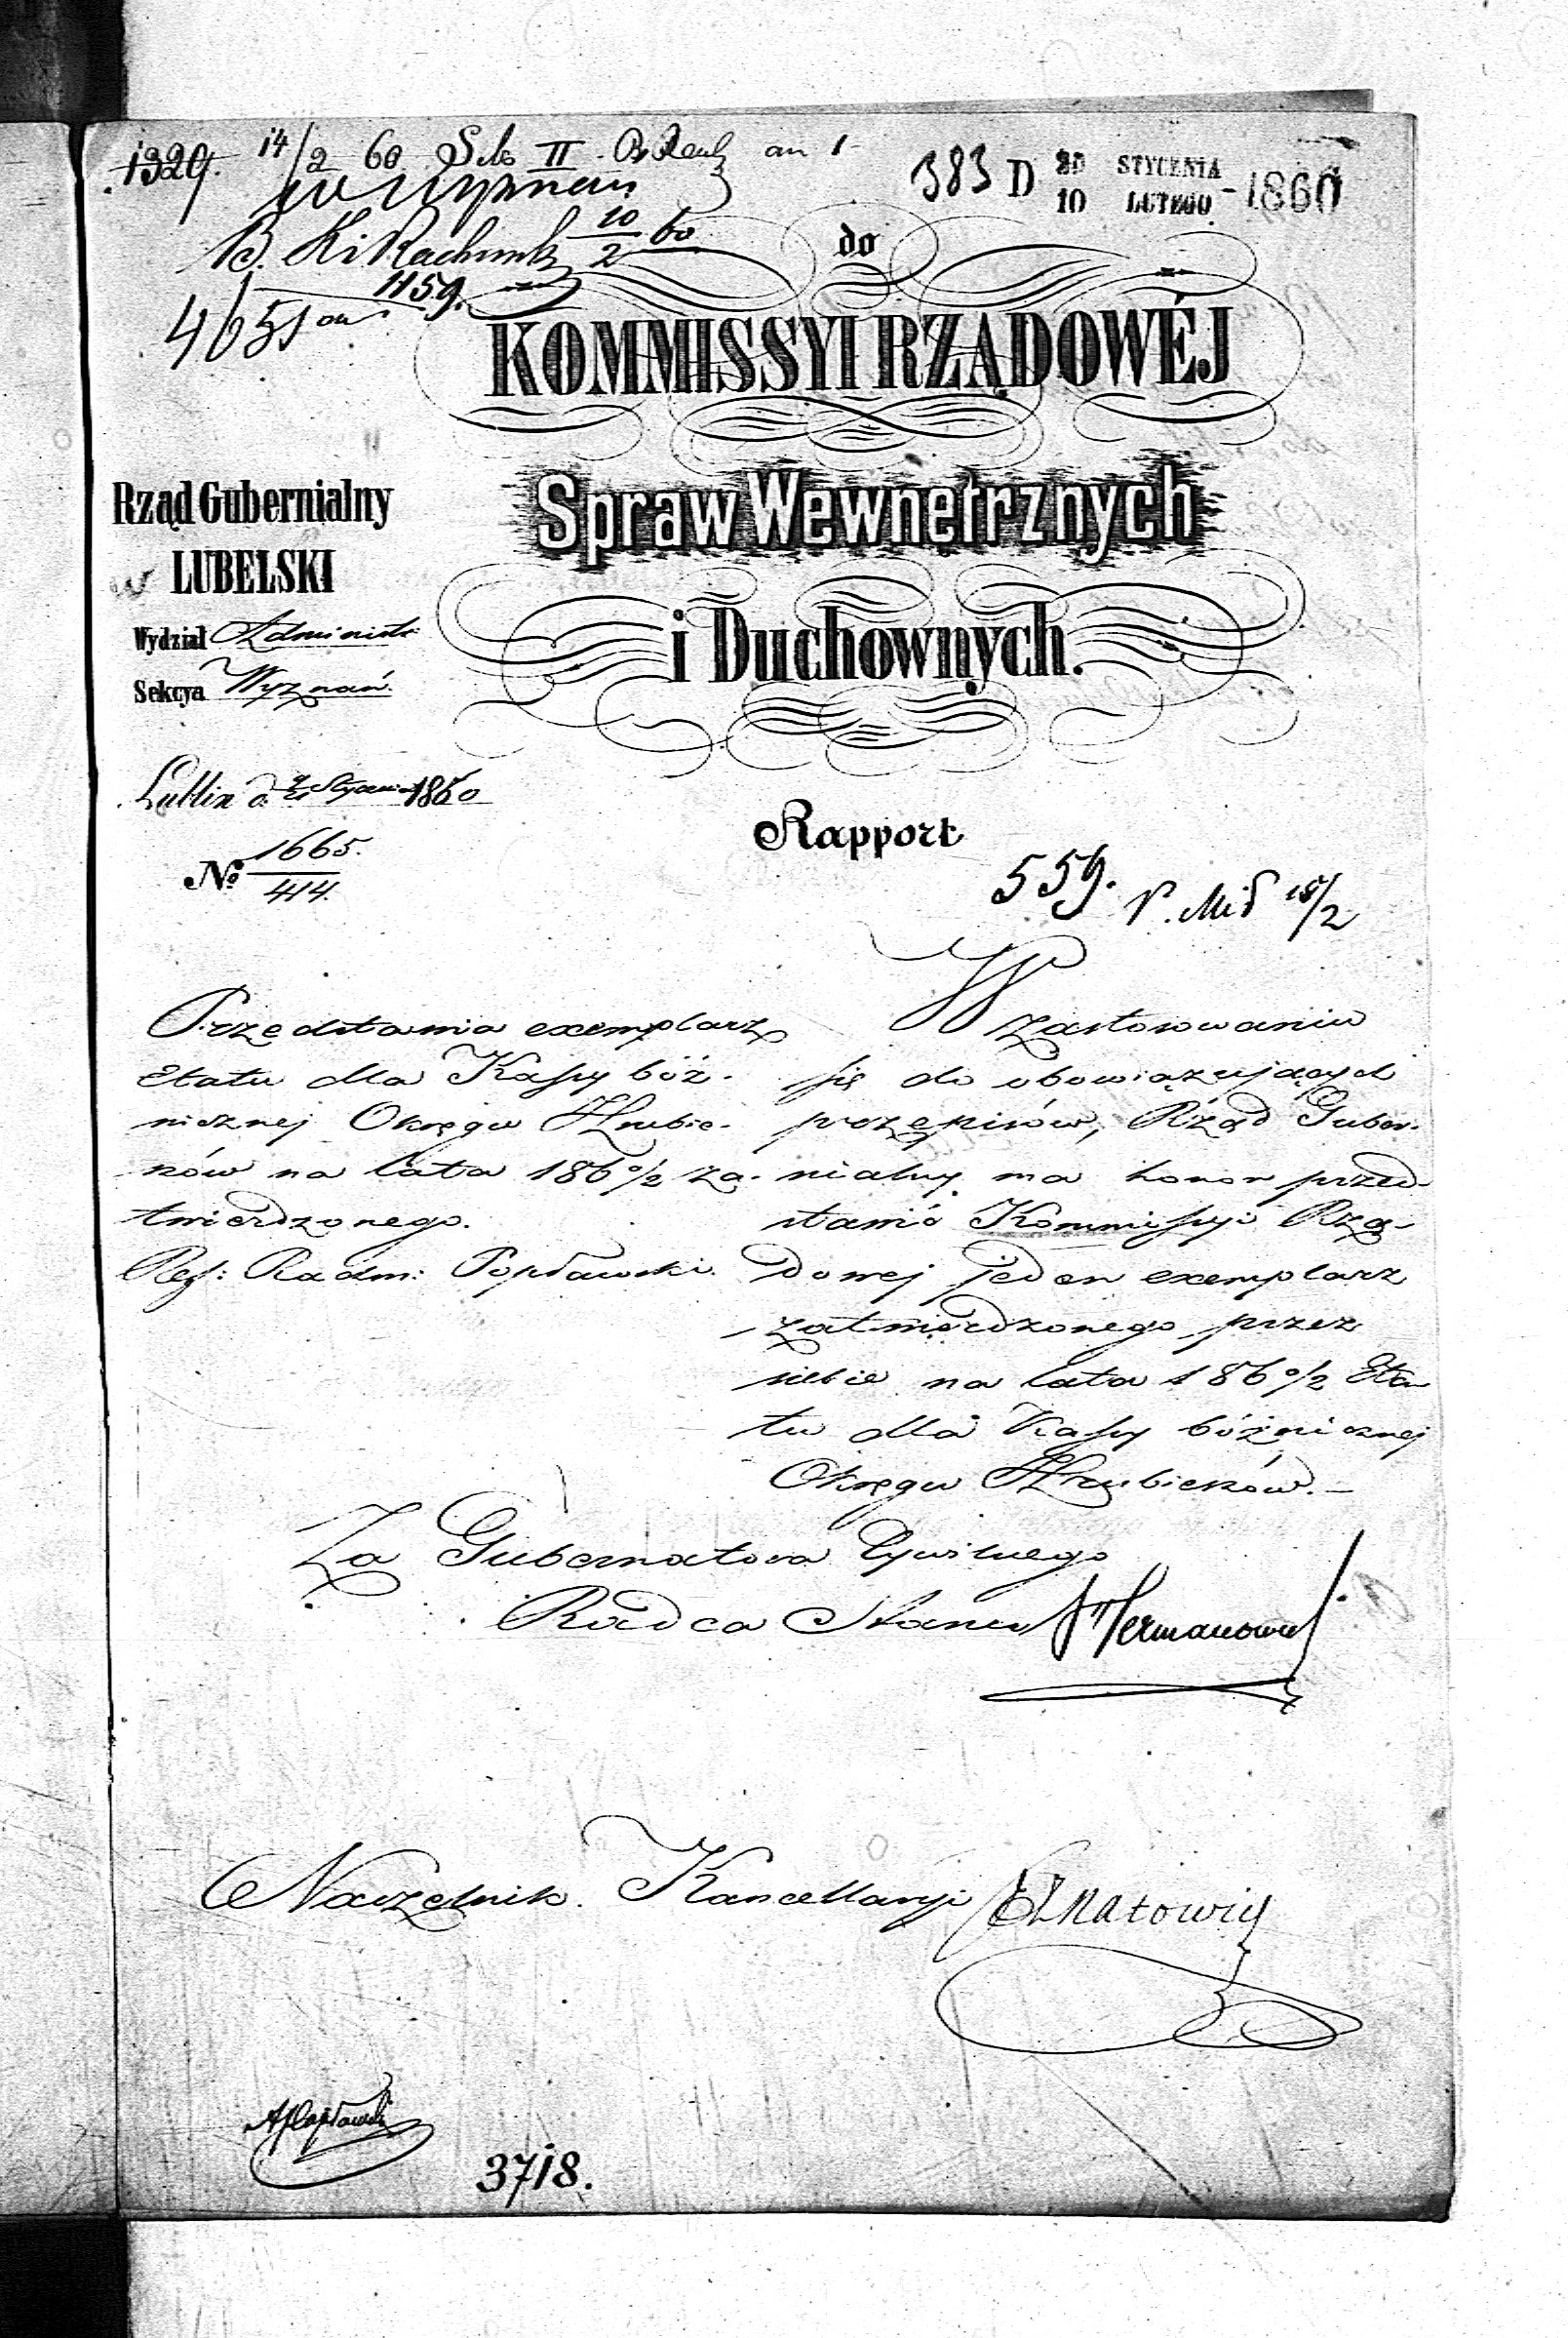 1329. 14/2 60 II
383 D 29 STYCZNIA
10 LUTEGO - 1860
Wyznań
10/2 60
1159.
4651
do
KOMMISSYI RZĄDOWÉJ
Spraw Wewnętrznych
i Duchownych.
Rząd Gubernialny
w LUBELSKI
Wydział Administr
Sekcya Wyznań.
Lublin d. Stycznia 1860
Rapport
No 1665.
414.
559. 15/2
Przedstawia exemplarz
Etatu dla Kassy bóż-
nicznej Okręgu Hrubie-
szów na lata 186 0/2 za-
twierdzonego.
Ref: Radm: Popławski.
W zastosowaniu
się do obowiązujących
przepisów, Rząd Guber-
nialny ma honor przed-
stawić Kommissyi Rzą-
dowej jeden exemplarz
zatwierdzonego przez
siebie na lata 186 0/2 Eta-
tu dla Kassy bóżnicznej
Okręgu Hrubieszów.-
Za Gubernatora Cywilnego
Radca Stanu
Naczelnik Kancellaryi
APopławski
3718.